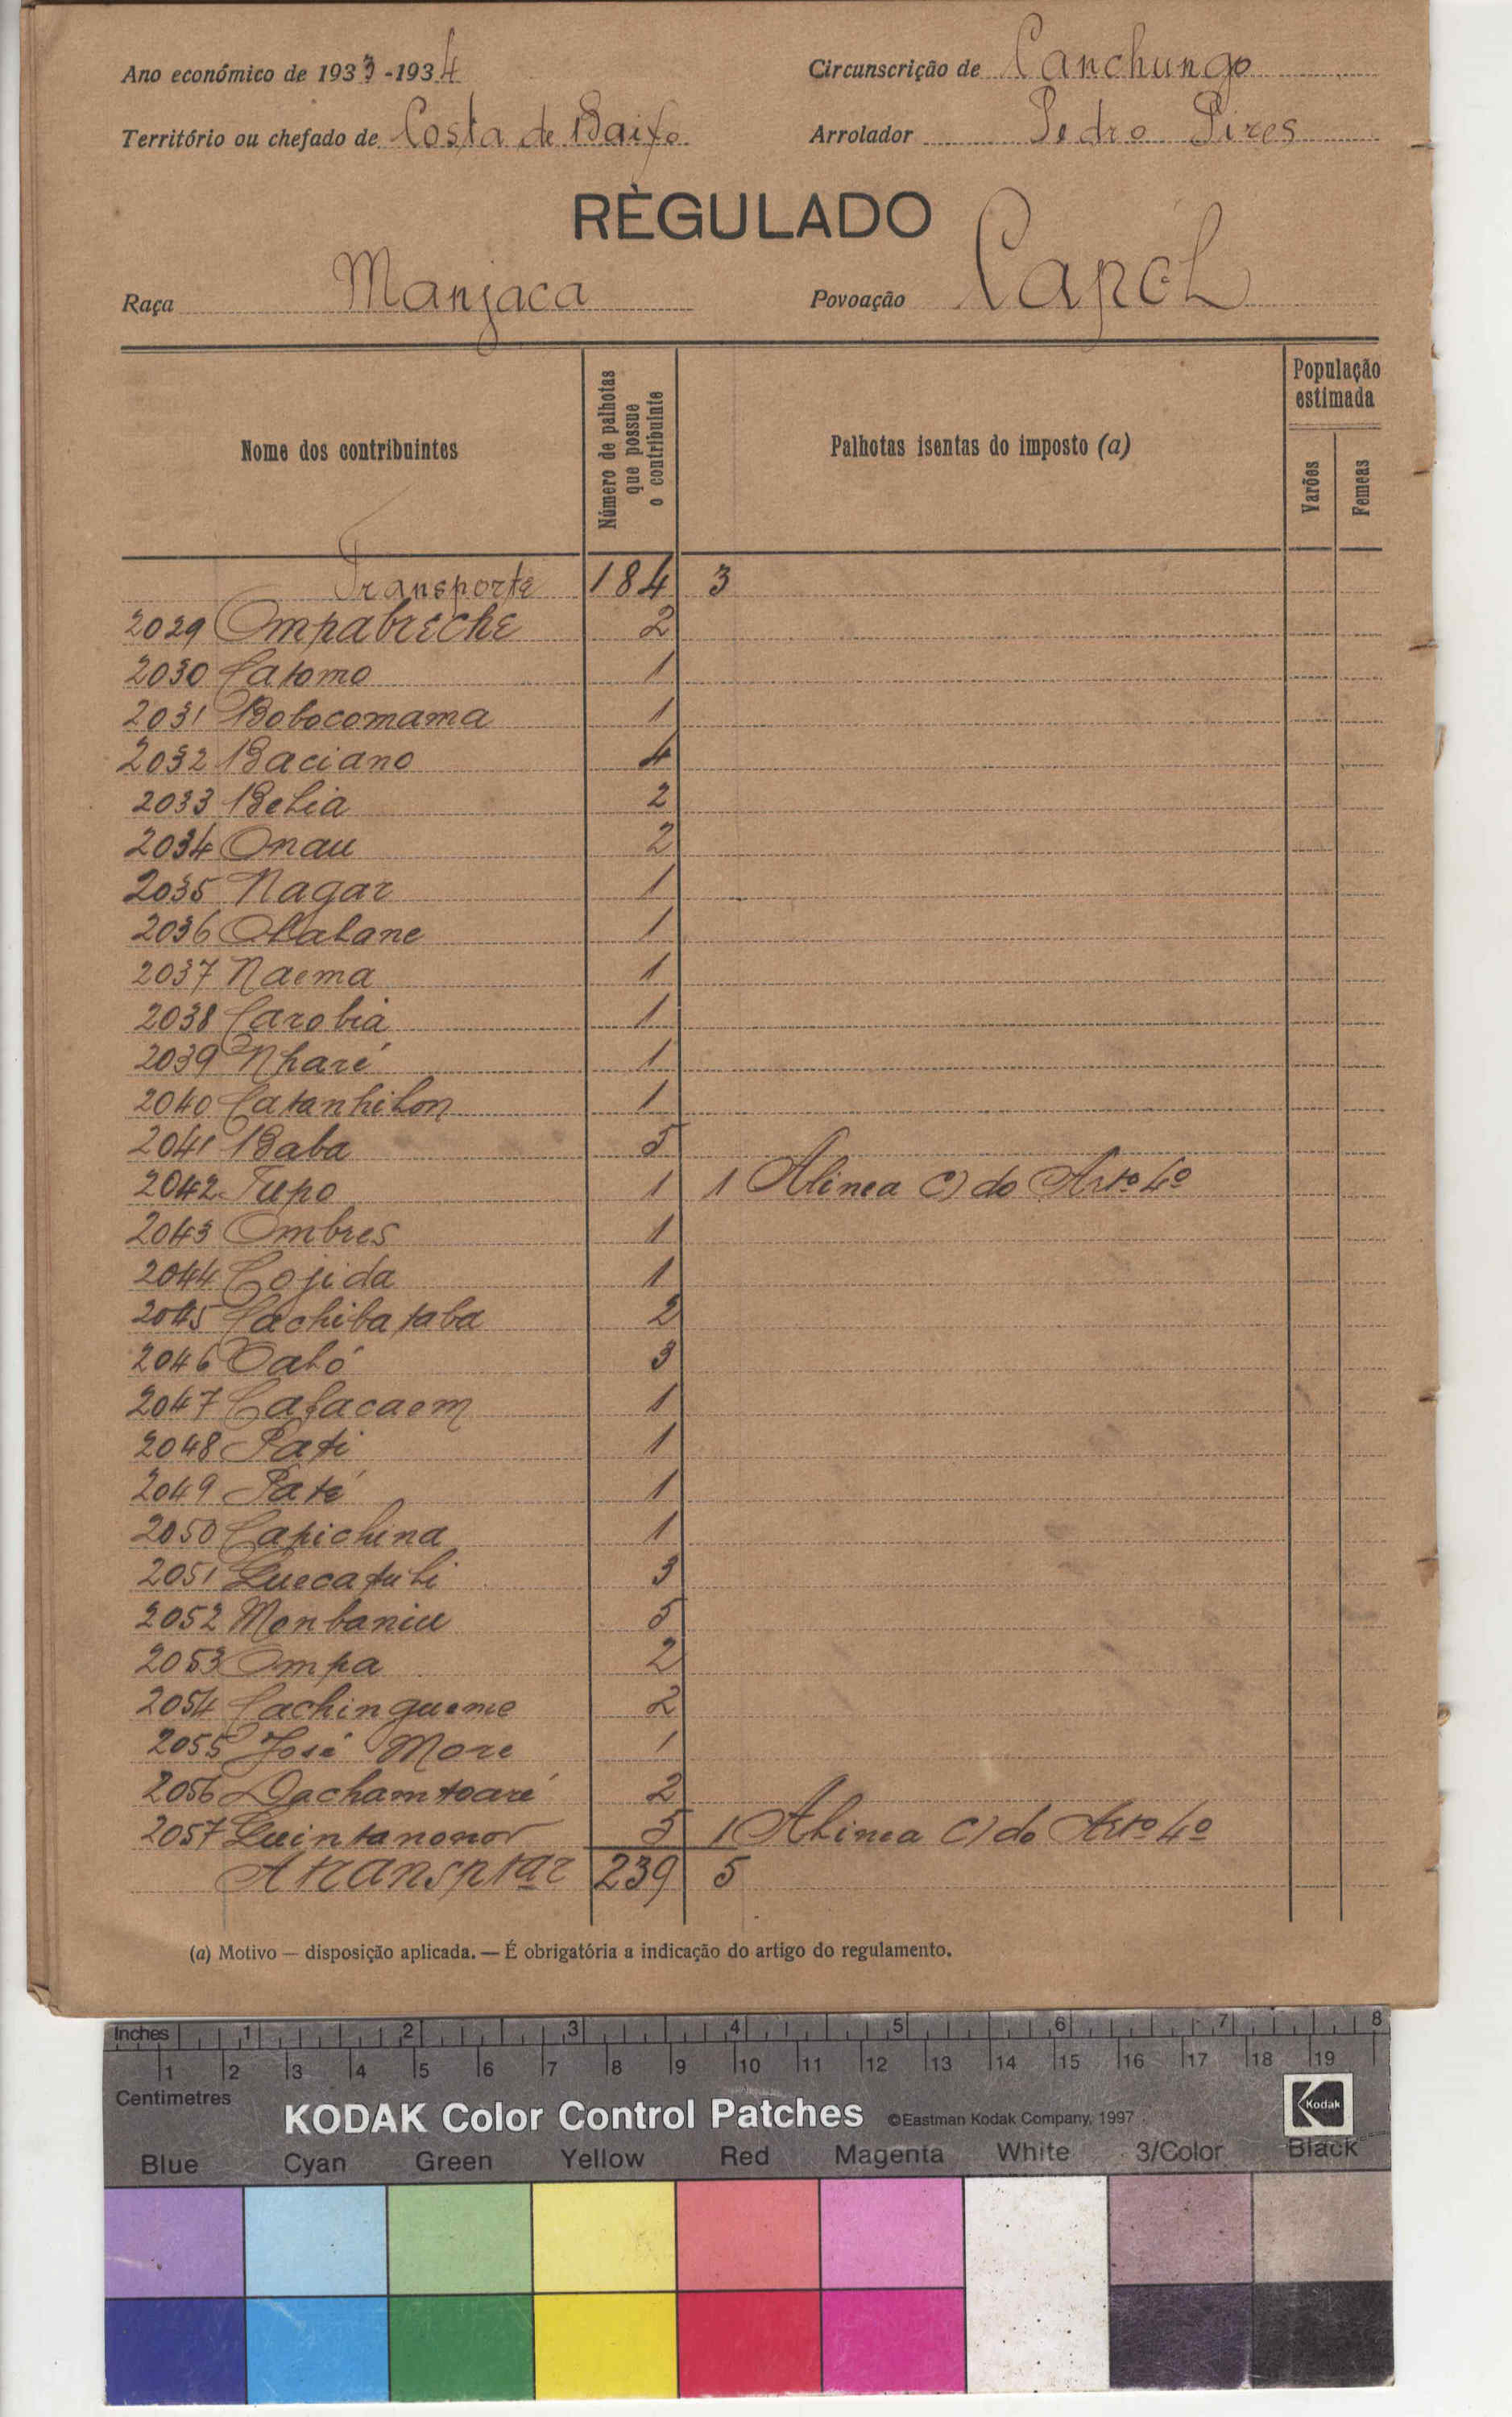 Ano económico de 1933-1934 Circunscrição de Canchungo
Território ou chefado de Costa de Baixo Arrolador Pedro Pires
REGULADO
Raça Manjaca Povoação Capol
Nome dos contribuintes Número de palhotas que possue o contribuinte Palhotas isentas do imposto (a) População estimada Varões Femeas
Transporte 184 3
2029 Ompabreche 2
2030 Catomo 1
2031 Bobocomama 1
2032 Baciano 4
2033 Belia 2
2034 Onau 2
2035 Nagar 1
2036 Olalane 1
2037 Naema 1
2038 Carobia 1
2039 Nharé 1
2040 Catanhilon 1
2041 Baba 5
2042 Tupo 1 1 Alinea C) do Artº 4º
2043 Ombres 1
2044 Cojida 1
2045 Cachibataba 2
2046 Caló 3
2047 Cafacaem 1
2048 Pati 1
2049 Paté 1
2050 Capichina 1
2051 Quecatuli 3
2052 Monbaniu 5
2053 Ompa 2
2054 Cachingueme 2
2055 José More 1
2056 Dachamtoaré 2
2057 Quintanonor 5 1 Alinea C) do Artº 4º
A transptar 239 5
(a) Motivo — disposição aplicada. — É obrigatória a indicação do artigo do regulamento.
Inches 1 2 3 4 5 6 7 8
1 2 3 4 5 6 7 8 9 10 11 12 13 14 15 16 17 18 19
Centimetres
KODAK Color Control Patches ©Eastman Kodak Company, 1997 Kodak
Blue Cyan Green Yellow Red Magenta White 3/Color Black